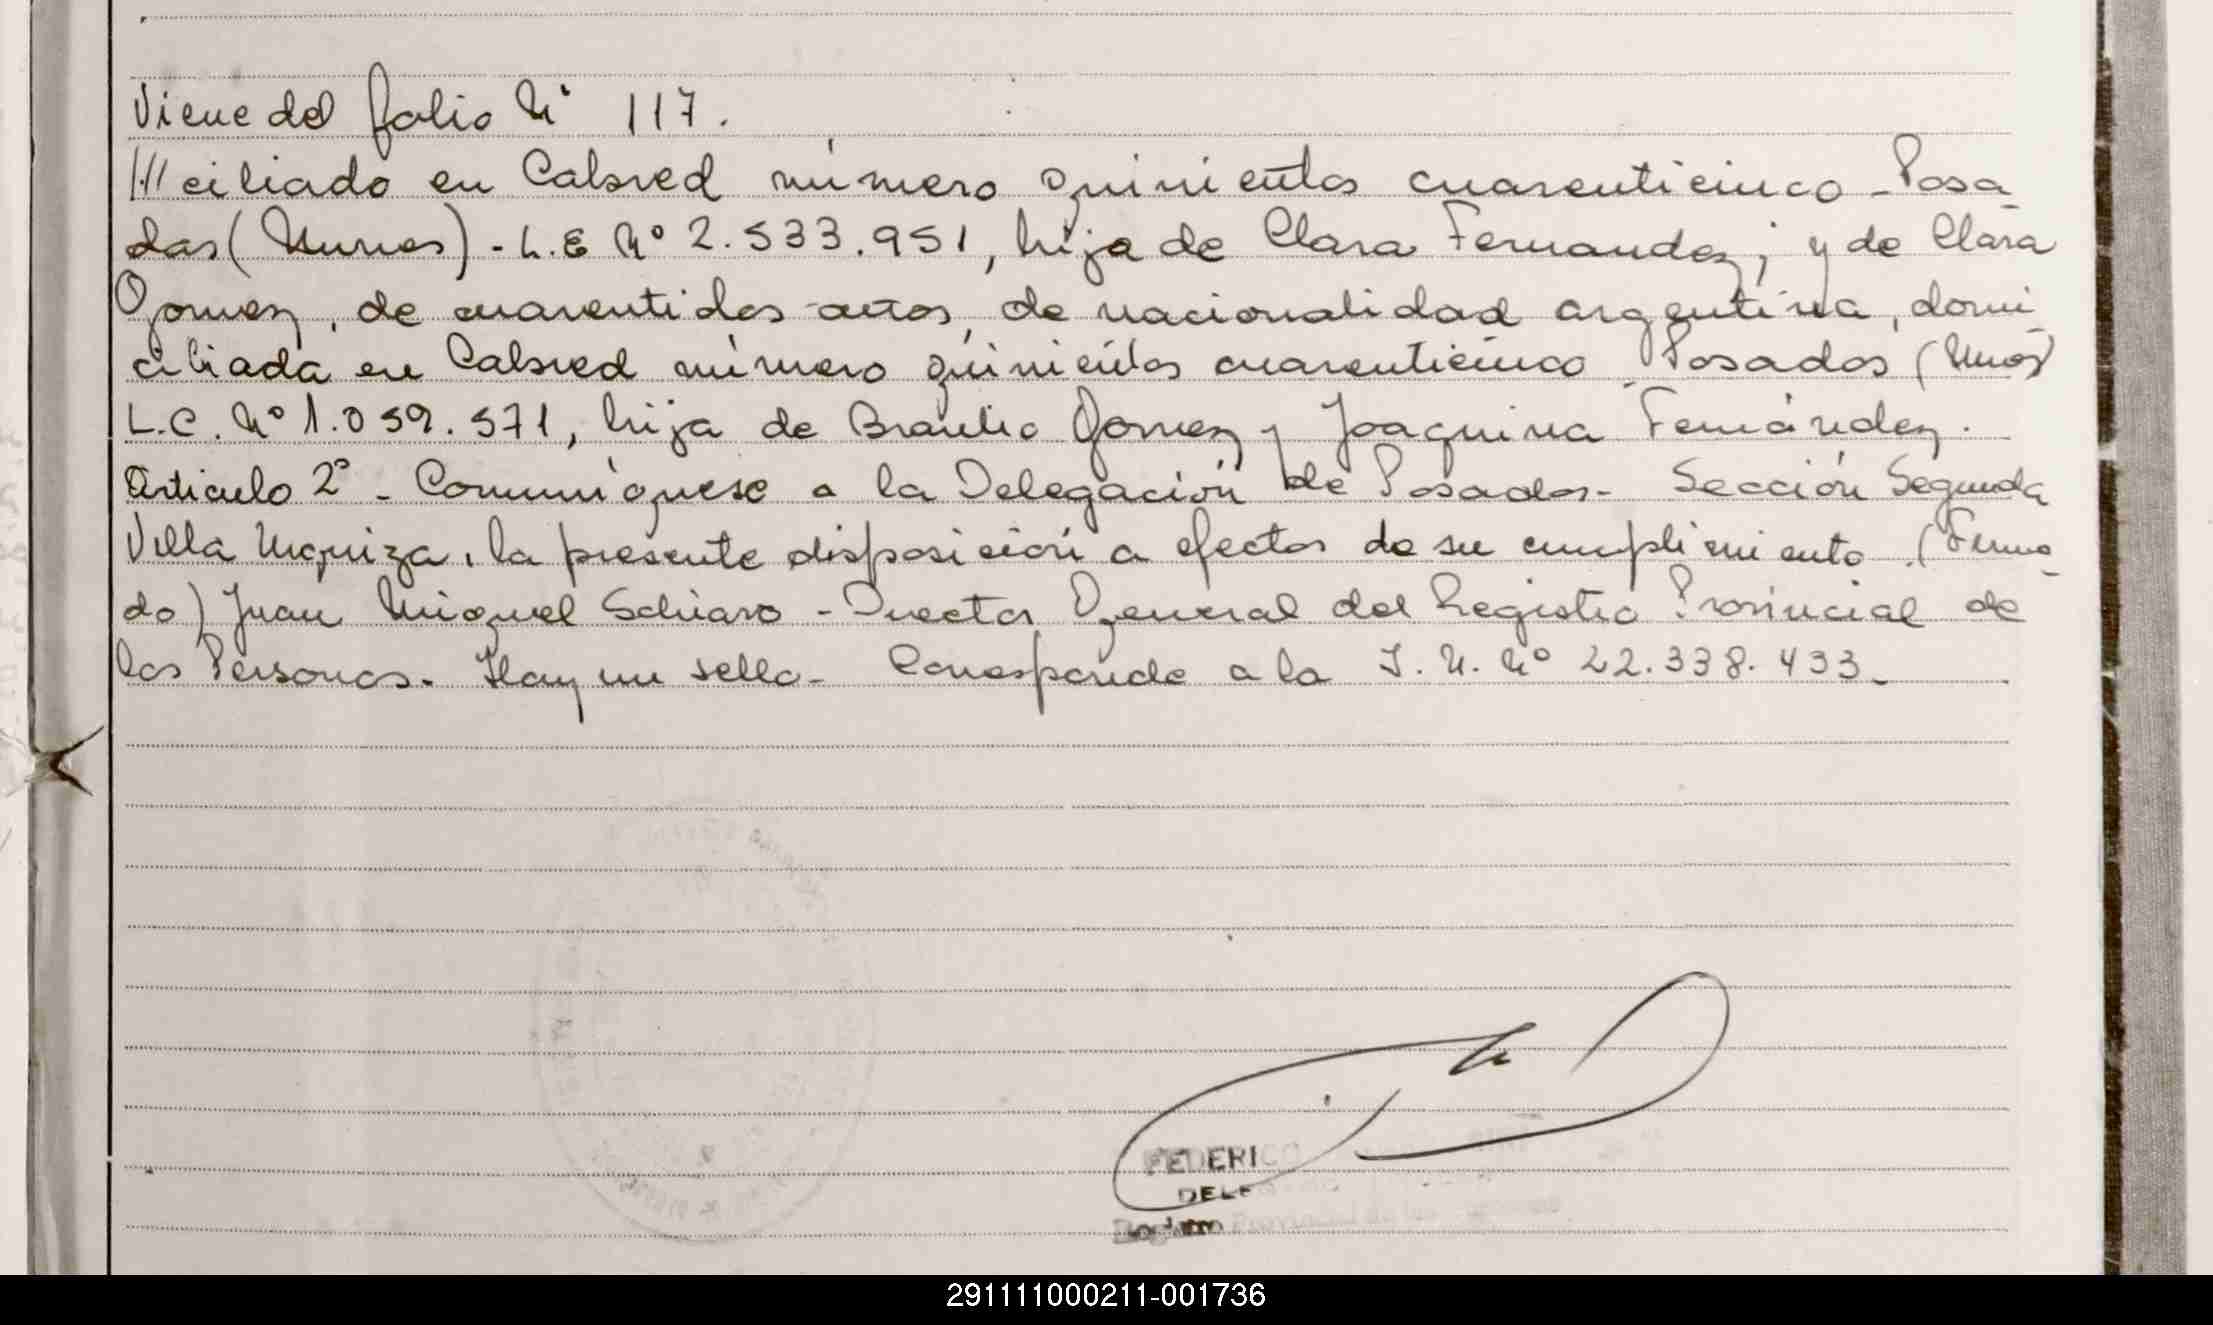 Viene del folio Nº 117.
///ciliado en Cabred número quinientos cuarenticinco - Posa
das (Mnes) - L.E Nº 2.533.951, hija de Clara Fernandez; y de Clara
Gomez, de cuarentidos años, de nacionalidad argentina, domi
ciliada en Cabred número quinientos cuarenticinco Posadas (Mnes)
L.C. Nº 1.059.571, hija de Braulio Gomez y Joaquina Fernández.
Articulo 2º - Comuníquese a la Delegación de Posadas - Sección Segunda
Villa Urquiza, la presente disposición a efectos de su cumplimiento. (Firma
do) Juan Miguel Schiaro - Director General del Registro Provincial de
las Personas. Hay un sello - Corresponde a la I.N. Nº 22.338.433 -
FEDERICO
291111000211-001736